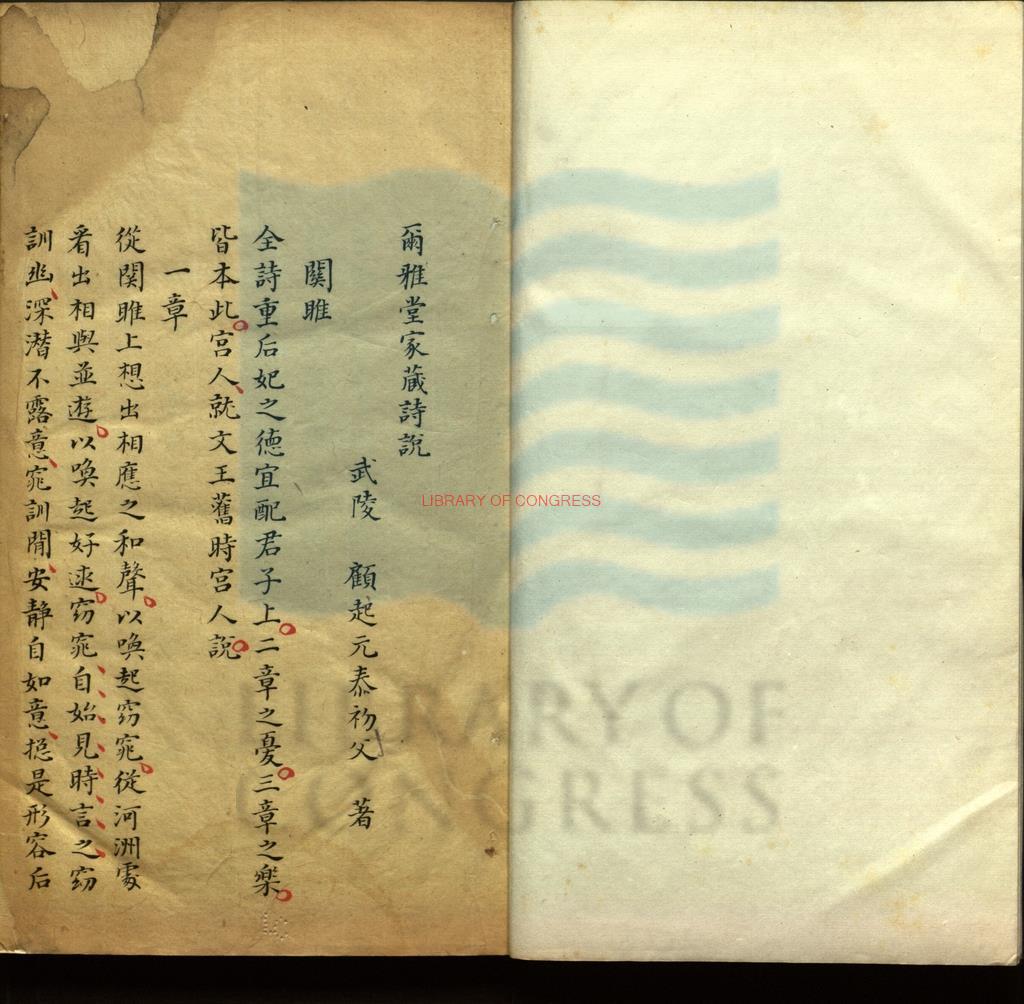 爾雅堂家蔵詩說
武陵 顧起元泰初父 著
関雎
全詩重后妃之徳宜配君子上二章之憂三章之樂
皆本此宮人就文王舊時宮人說
一章
從関雎上想出相應之和聲以喚起窈窕從河洲䖏
看出相與並遊以喚起好逑窈窕自始見時言之窈
訓幽深潜不露意窕訓閒安静自如意揔是形容后
LIBRARY OF CONGRESS
LIBRARY OF
CONGRESS